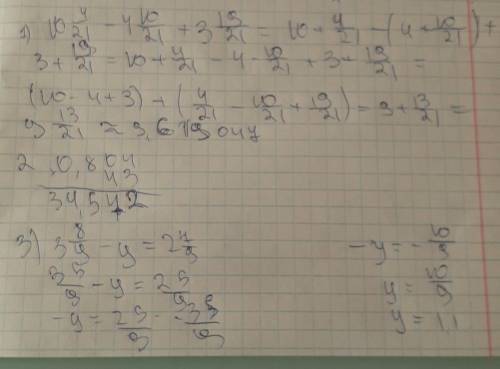 1) 10 4/21 - 4 10/21 + 3 19/21 = 10 + 4/21 - (4 + 10/21) +
3 + 19/21 = 10 + 4/21 - 4 - 10/21 + 3 + 19/21 =
(10 - 4 + 3) + (4/21 - 10/21 + 19/21) = 9 + 13/21 =
9 13/21 ≈
2 0,804
43
34,572
3) 3 8/9 - y = 2 7/9
35/9 - y = 25/9
-y = 25/9 - 35/9
-y = -10/9
y = 10/9
y = 1,1